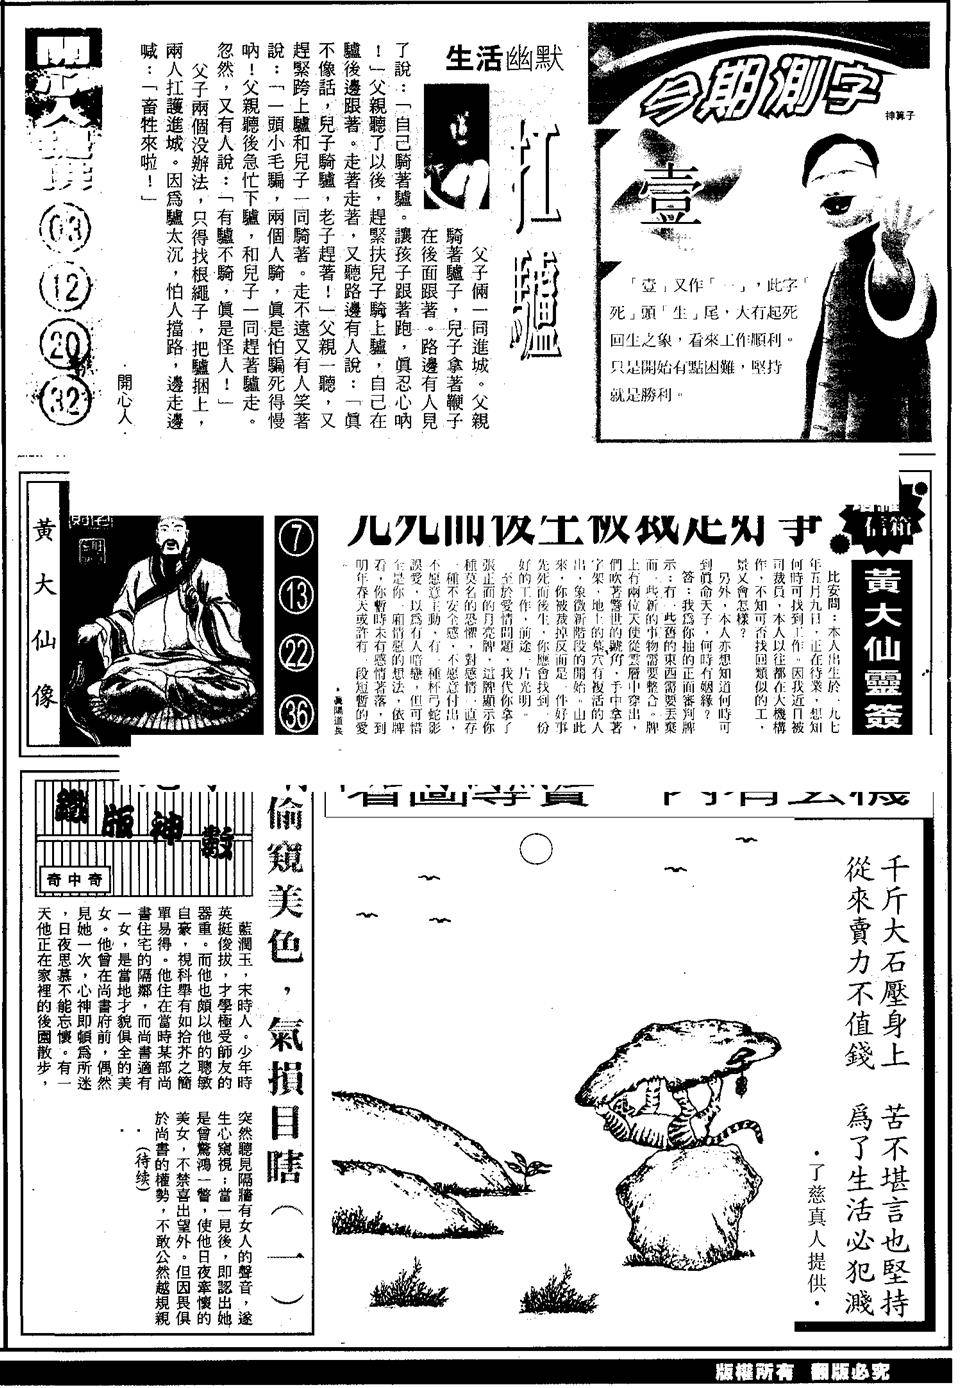 今期測字
神算子
壹
「壹」又作「一」，此字「
死」頭「生」尾，大有起死
回生之象，看來工作順利。
只是開始有點困難，堅持
就是勝利。
生活幽默
扛驢
父子倆一同進城。父親
騎著驢子，兒子拿著鞭子
在後面跟著。路邊有人見
了說：「自己騎著驢。讓孩子跟著跑，眞忍心吶
！」父親聽了以後，趕緊扶兒子騎上驢，自己在
驢後邊跟著。走著走著，又聽路邊有人說：「眞
不像話，兒子騎驢，老子趕著！」父親一聽，又
趕緊跨上驢和兒子一同騎著。走不遠又有人笑著
說：「一頭小毛驢，兩個人騎，眞是怕騙死得慢
吶！父親聽後急忙下驢，和兒子一同趕著驢走。
忽然，又有人說：「有驢不騎，眞是怪人！」
父子兩個没辦法，只得找根繩子，把驢捆上，
兩人扛護進城。因爲驢太沉，怕人擋路，邊走邊
喊：「畜牲來啦！」
．開心人．
03
12
20
32
信箱
黃大仙靈簽
先死而後生被裁是好事
比安問：本人出生於一九七
年五月九日，正在待業，想知
何時可找到工作。因我近日被
司裁員，本人以往都在大機構
作，不知可否找回類似的工，
景又會怎樣？
另外，本人亦想知道何時可
到眞命天子，何時有姻緣？
答：我爲你抽的正面審判牌
示：有一些舊的東西需要丟棄
而一些新的事物需要整合。牌
上有兩位天使從雲層中穿出，
們吹著警世的號角，手中拿著
字架，地上的墓穴有複活的人
出，象徵新階段的開始。由此
來，你被裁掉反而是一件好事
先死而後生，你應會找到一份
好的工作，前途一片光明。
至於愛情問題，我代你拿了
張正面的月亮牌，這牌顯示你
種莫名的恐懼，對感情一直存
一種不安全感，不愿意付出，
不愿意主動，有一種杯弓蛇影
誤愛，以爲有人暗戀，但可惜
全是你一厢情愿的想法，依牌
看，你暫時未有感情著落，到
明年春天或許有一段短暫的愛
7
13
22
36
黃大仙像
機玄有內　寶尋圖看
千斤大石壓身上　苦不堪言也堅持
從來賣力不值錢　爲了生活必犯濺
．了慈真人提供．
偷窺美色，氣損目瞎（一）
鐵版神數
奇中奇
藍潤玉，宋時人。少年時
英挺俊拔，才學極受師友的
器重。而他也頗以他的聰敏
自豪，視科舉有如拾芥之簡
單易得。他住在當時某部尚
書住宅的隔鄰，而尚書適有
一女，是當地才貌俱全的美
女。他曾在尚書府前，偶然
見她一次，心神即頓爲所迷
，日夜思慕不能忘懷。有一
天他正在家裡的後園散步，
突然聽見隔牆有女人的聲音，遂
生心窺視；當一見後，即認出她
是曾驚鴻一瞥，使他日夜牽懷的
美女，不禁喜出望外。但因畏俱
於尚書的權勢，不敢公然越規親
．．（待续）
版權所有　翻版必究